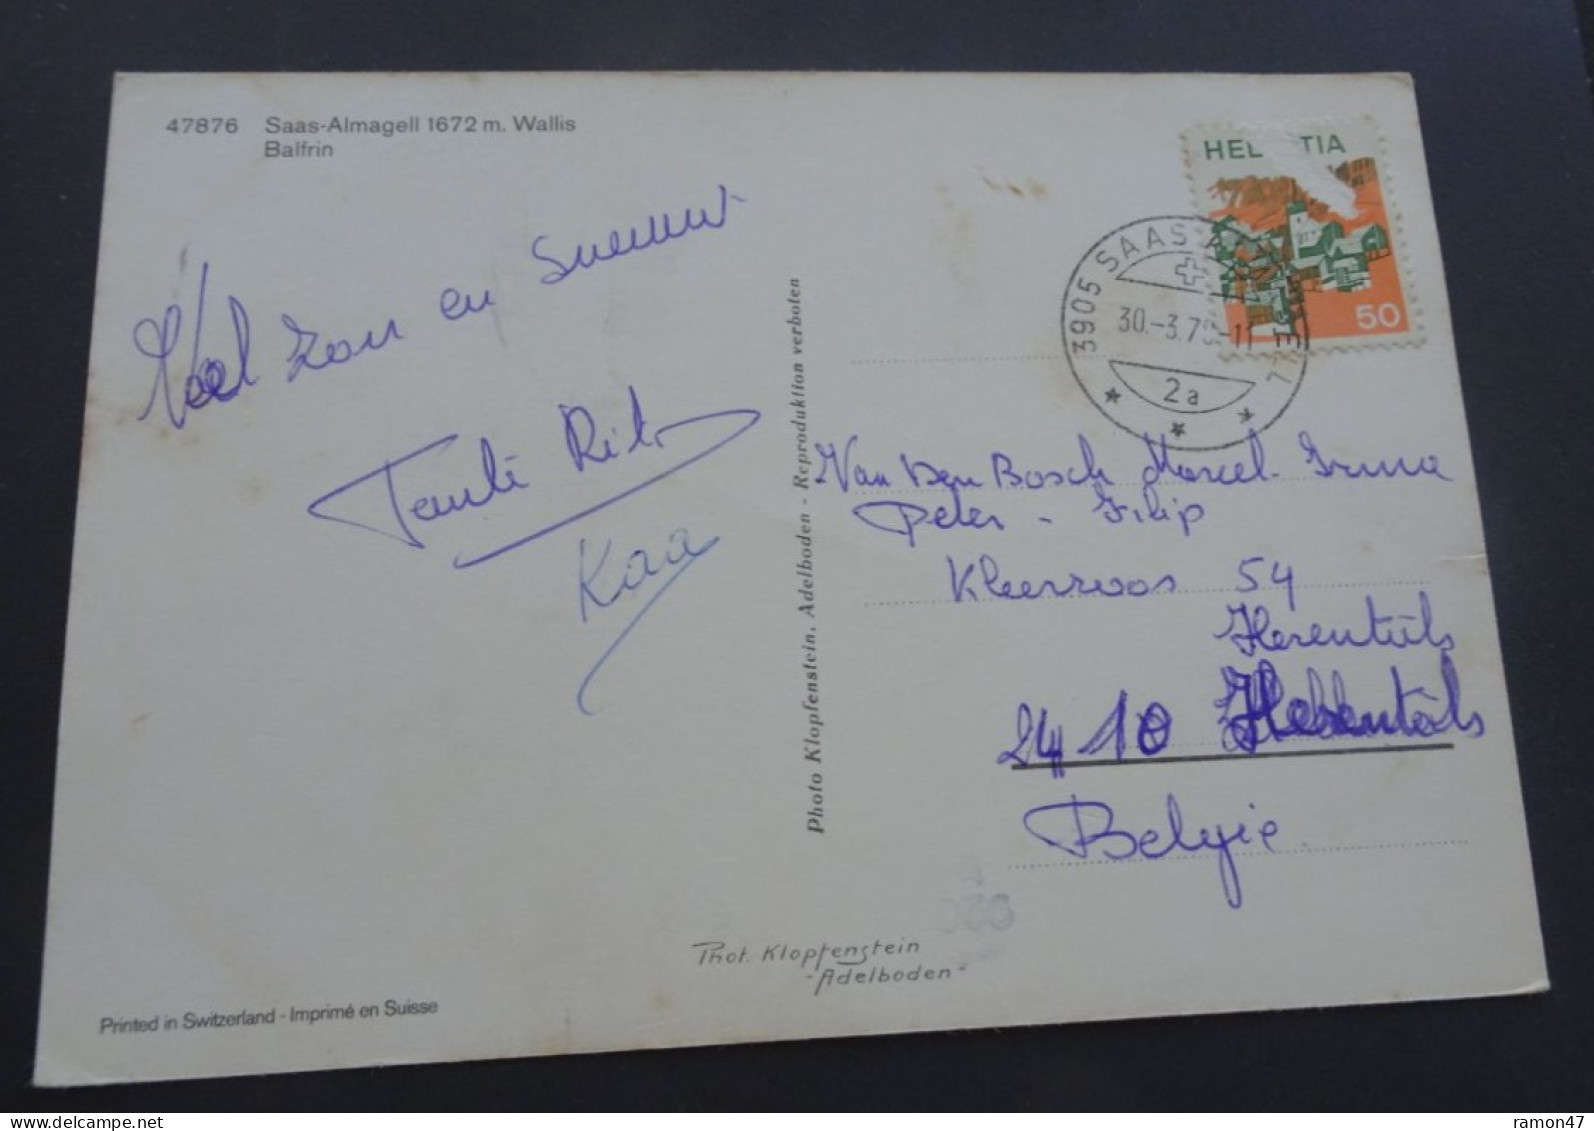 47876 Saas-Almagell 1672 m. Wallis
Balfrin
Veel zon en sneeuw
Tante Rit
Kaa
Photo Klopfenstein, Adelboden - Reproduktion verboten
HEL TIA
50
3905 SAAS ALMAGELL
30.-3.7 -11
2a
Van Den Bosch Marcel - Irma
Peter - Filip
Kleerroos 54
Herentals
2410 Herentals
België
Phot. Klopfenstein
-Adelboden-
Printed in Switzerland - Imprimé en Suisse
www.delcampe.net
ramon47